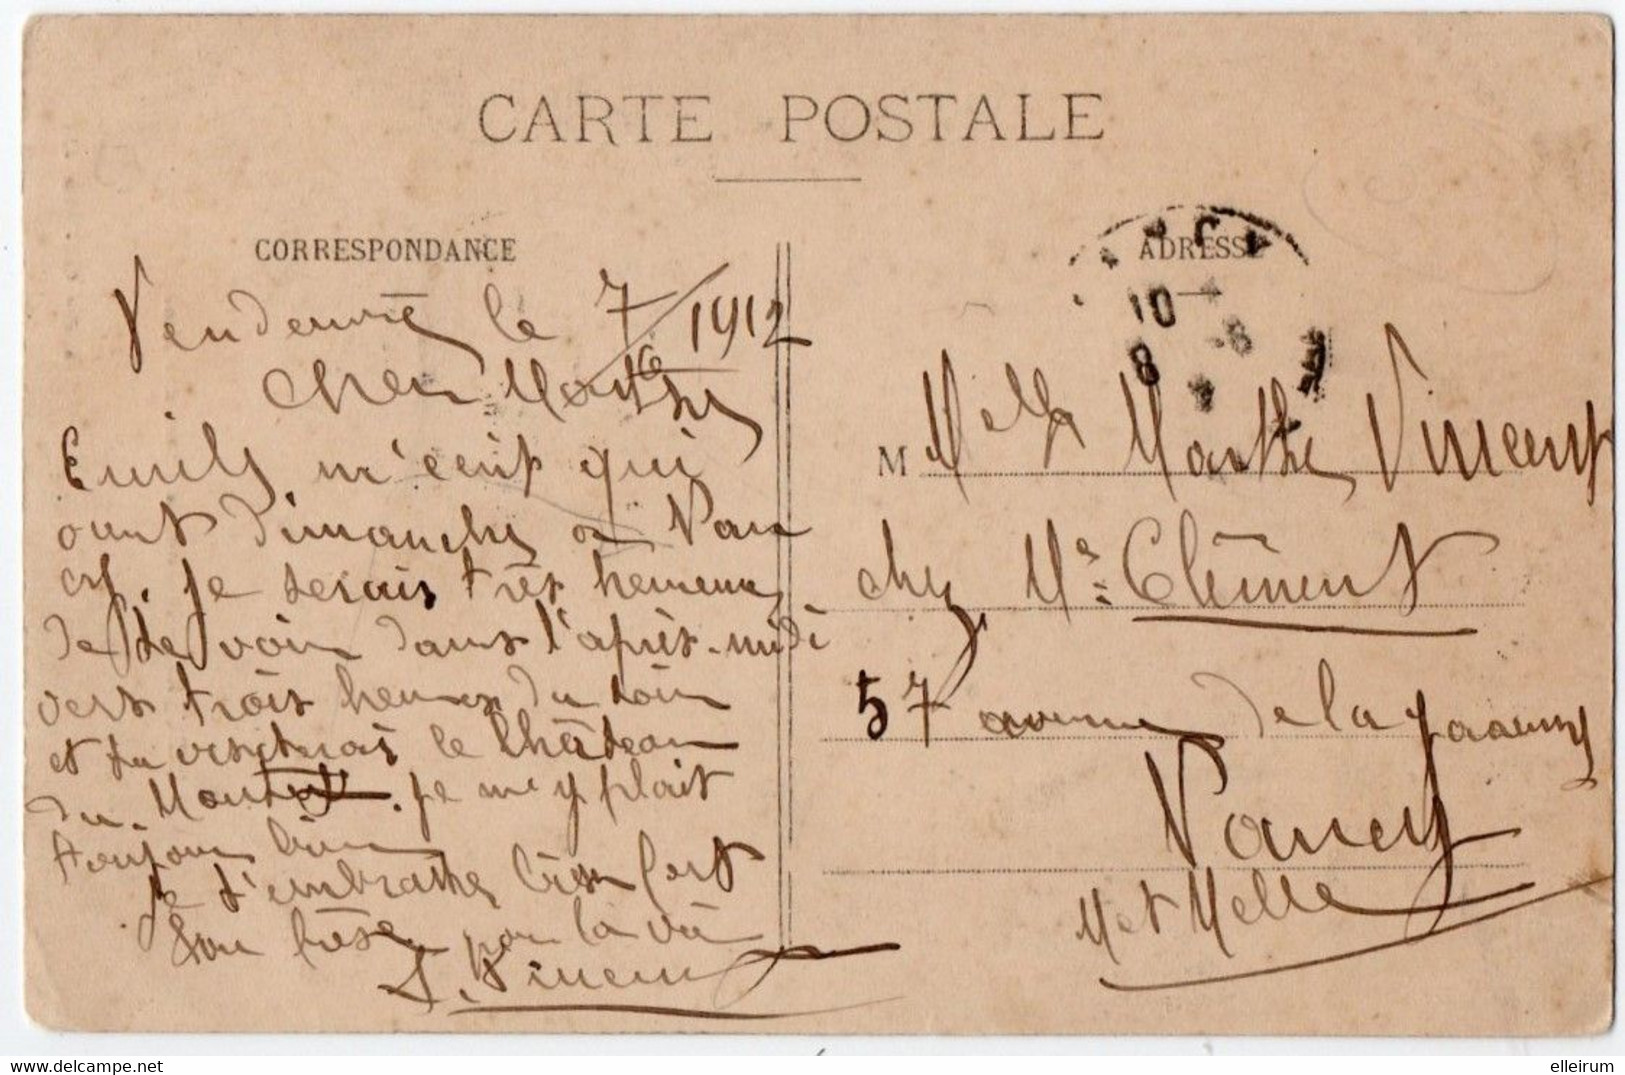 CARTE POSTALE
CORRESPONDANCE
Vendeuvre le 7/6 1912
Cher Marthe
Emile m'ecrit qui
vont Dimanche a Nan
cy. Je serais très heureux
de te voir dans l'après-midi
vers trois heures du soir
et tu visiteras le Château
du Montet. Je m'y plait
toujour bien
Je t'embrasse bien fort
Ton frèse pour la vie
Vincent
ADRESSE
10
8 - 6
M Melle Marthe Vincent
chez Me Clément
57 avenue de la Garenne
Nancy
M et Melle
elleirum